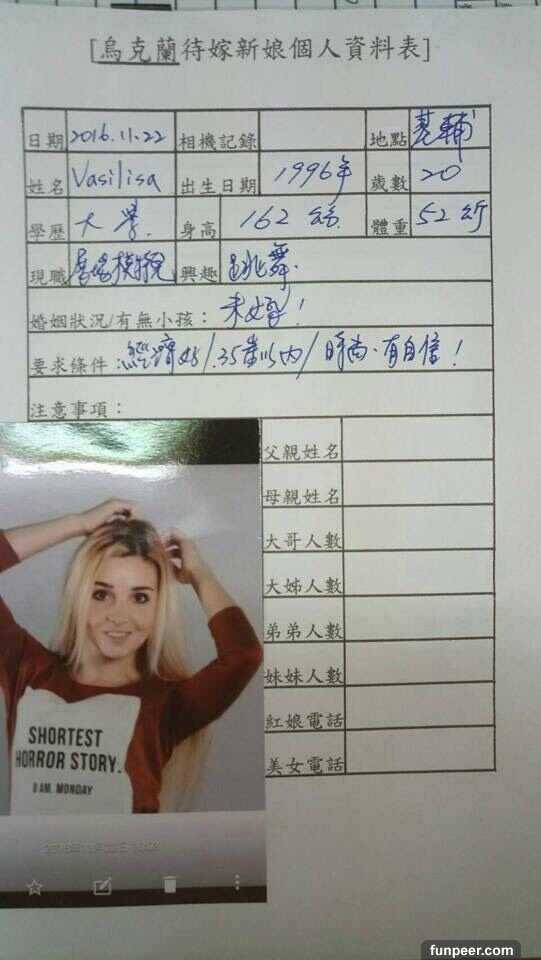 [烏克蘭待嫁新娘個人資料表]
日期 2016.11.22 相機記錄 地點 基輔
姓名 Vasilisa 出生日期 1996年 歲數 20
學歷 大學. 身高 162公分 體重 52公斤
現職 興趣 跳舞.
婚姻狀況/有無小孩: 未婚!
要求條件: 經濟好/.35歲以內/時尚、有自信!
注意事項:
父親姓名
母親姓名
大哥人數
大姊人數
弟弟人數
妹妹人數
紅娘電話
美女電話
SHORTEST
HORROR STORY.
8 AM. MONDAY
2016年11月22日
funpeer.com